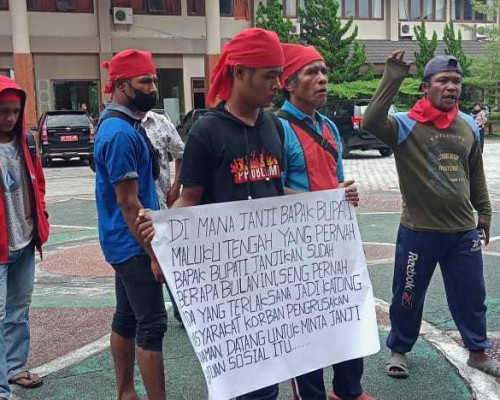 PROBLEM
EXCLUSIVE
DI MANA JANJI BAPAK BUPATI
MALUKU TENGAH YANG PERNAH
BAPAK BUPATI JANJIKAN SUDAH
BERAPA BULAN INI SENG PERNAH
DA YANG TERLAKSANA JADI KATONG
SYARAKAT KORBAN PENGRUSAKAN
MAN DATANG UNTUK MINTA JANJI
TUAN SOSIAL ITU......
Reebok